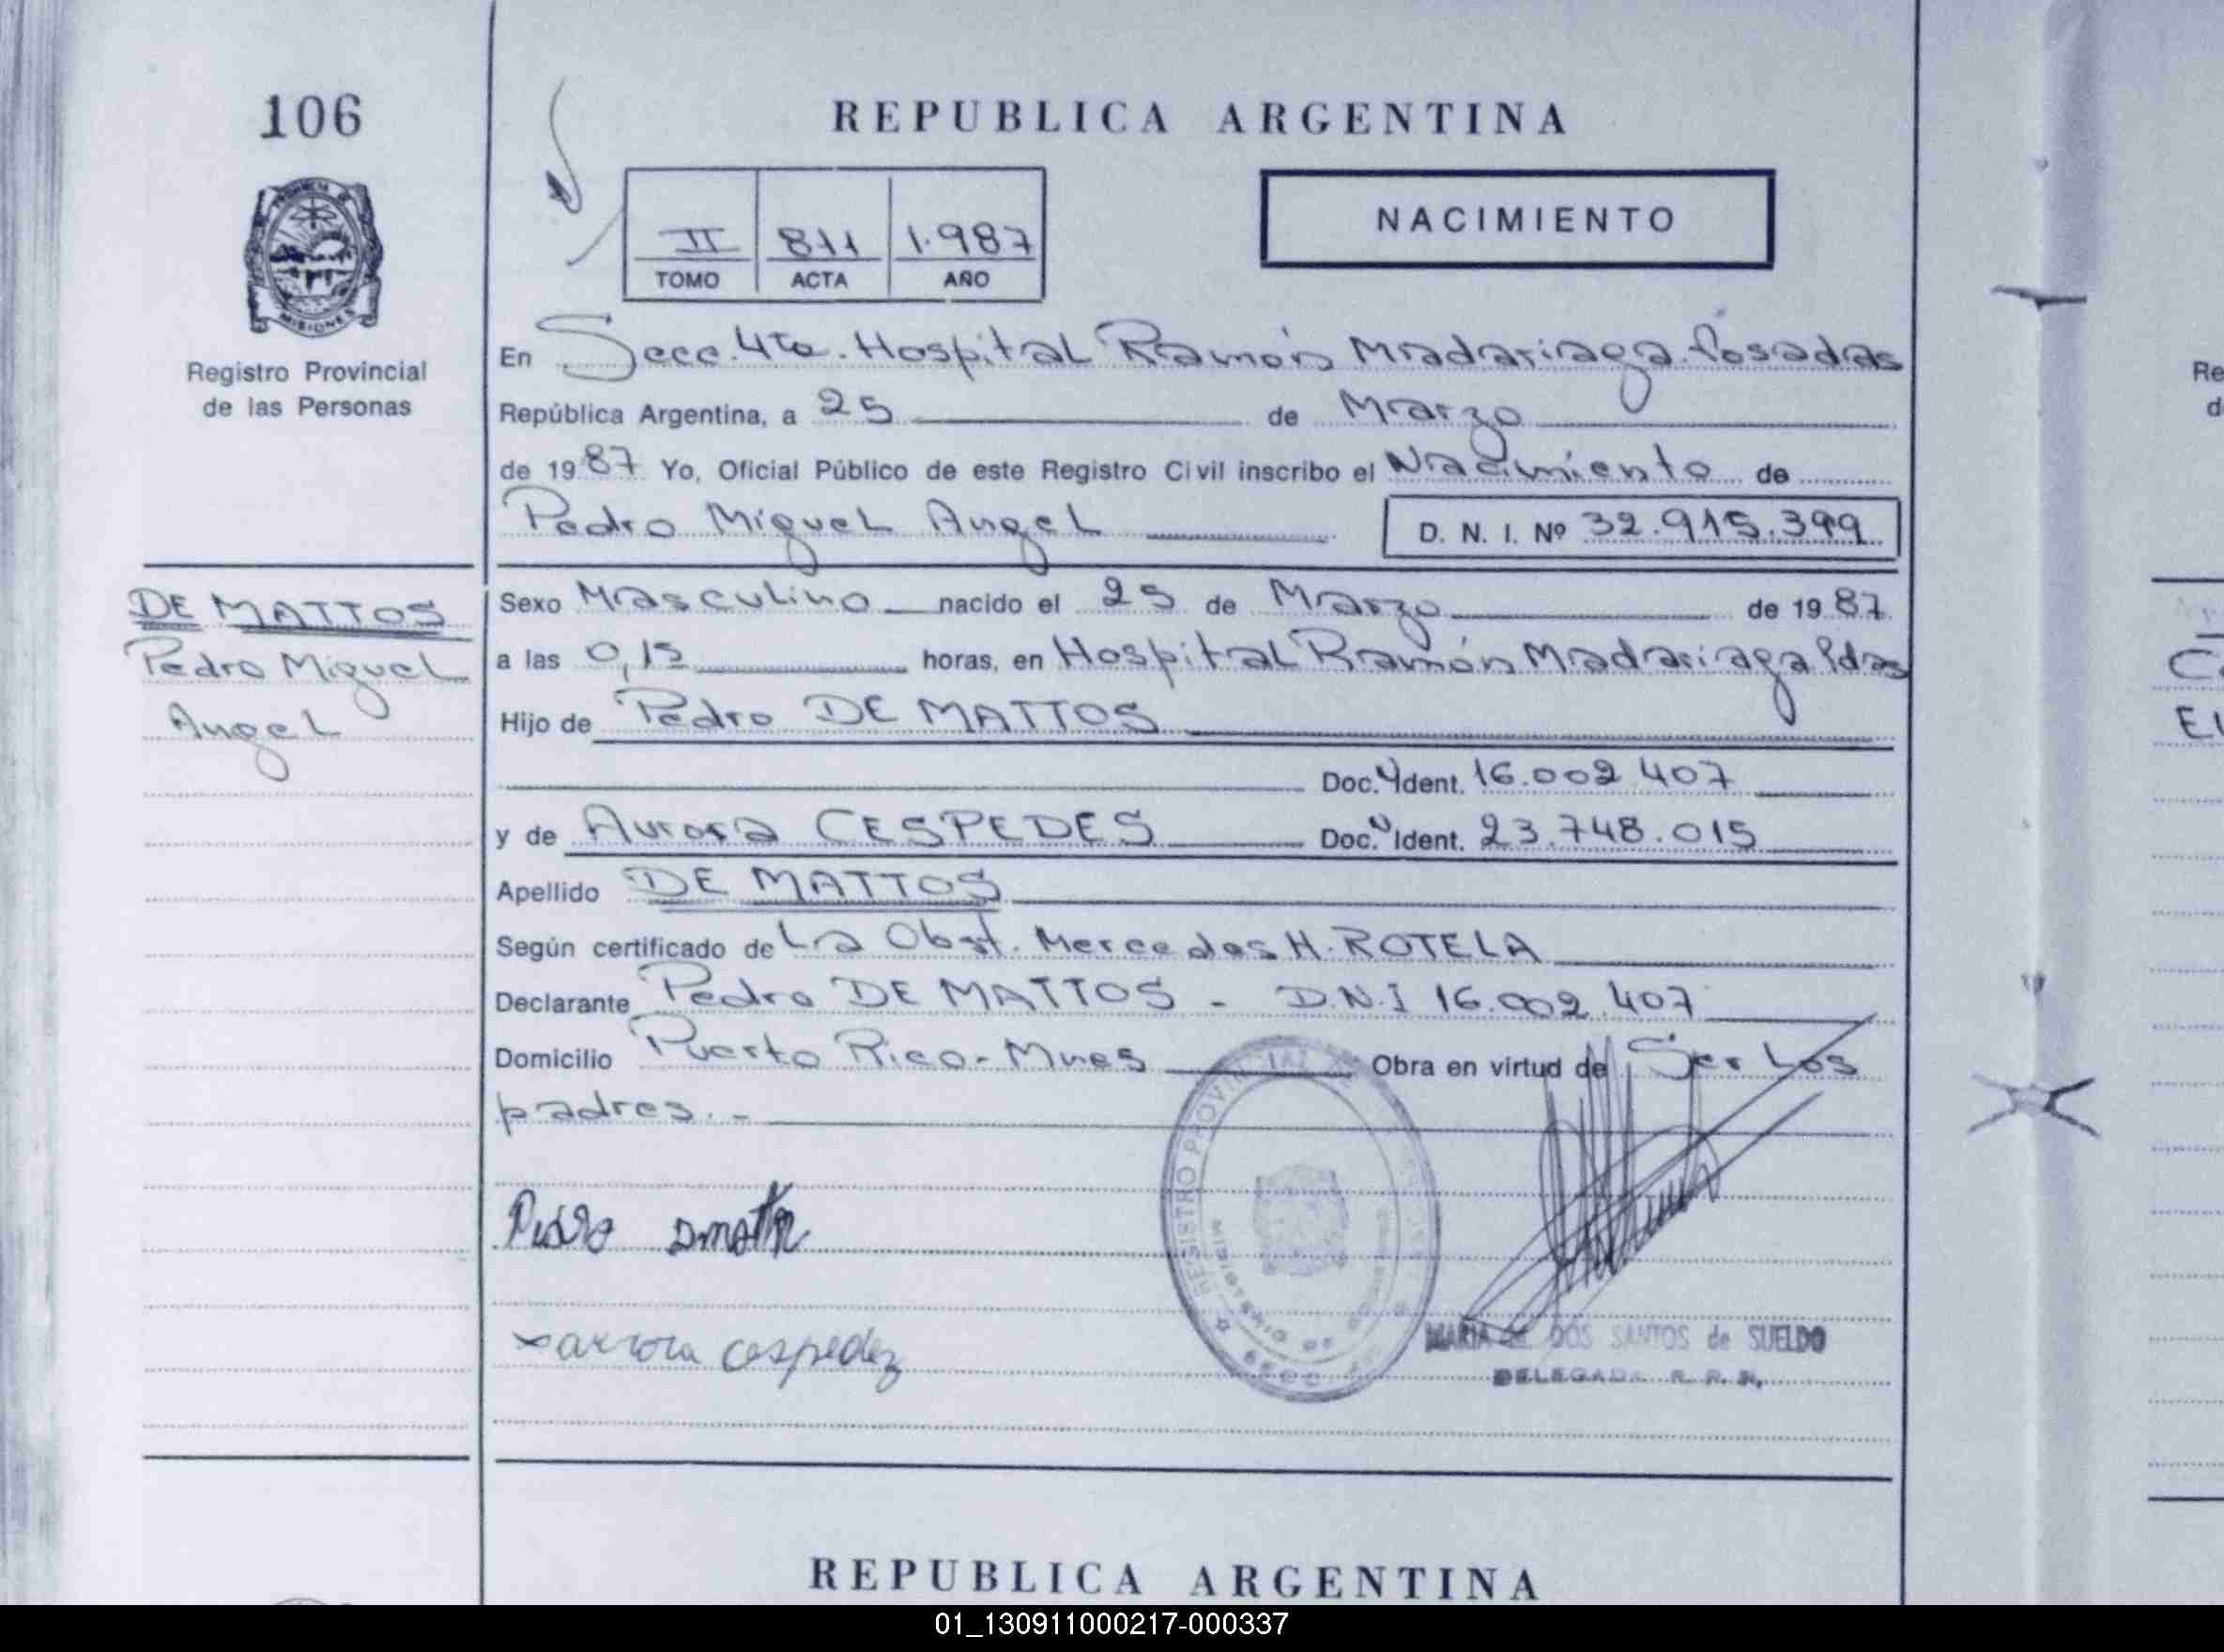 106
REPUBLICA ARGENTINA
II 811 1.987
TOMO ACTA AÑO
NACIMIENTO
MISIONES
Registro Provincial
de las Personas
En Secc. 4ta. Hospital Ramón Madariaga. Posadas
República Argentina, a 25 de Marzo
de 1987 Yo, Oficial Público de este Registro Civil inscribo el Nacimiento de
Pedro Miguel Angel D. N. I. Nº 32.915.399
DE MATTOS
Pedro Miguel
Angel
Sexo Masculino nacido el 25 de Marzo de 1987
a las 0,15 horas, en Hospital Ramón Madariaga Pdas
Hijo de Pedro DE MATTOS
Doc. Ident. 16.002.407
y de Aurora CESPEDES Doc. Ident. 23.748.015
Apellido DE MATTOS
Según certificado de La Obst. Mercedes H. ROTELA
Declarante Pedro DE MATTOS - D.N.I 16.002.407
Domicilio Puerto Rico - Mnes Obra en virtud de Ser Los
padres. -
REGISTRO PROVINCIAL
MINISTERIO DE
Pedro
aurora cespedez
MARIA DOS SANTOS de SUELDO
DELEGADA R. P. P.
REPUBLICA ARGENTINA
01_130911000217-000337